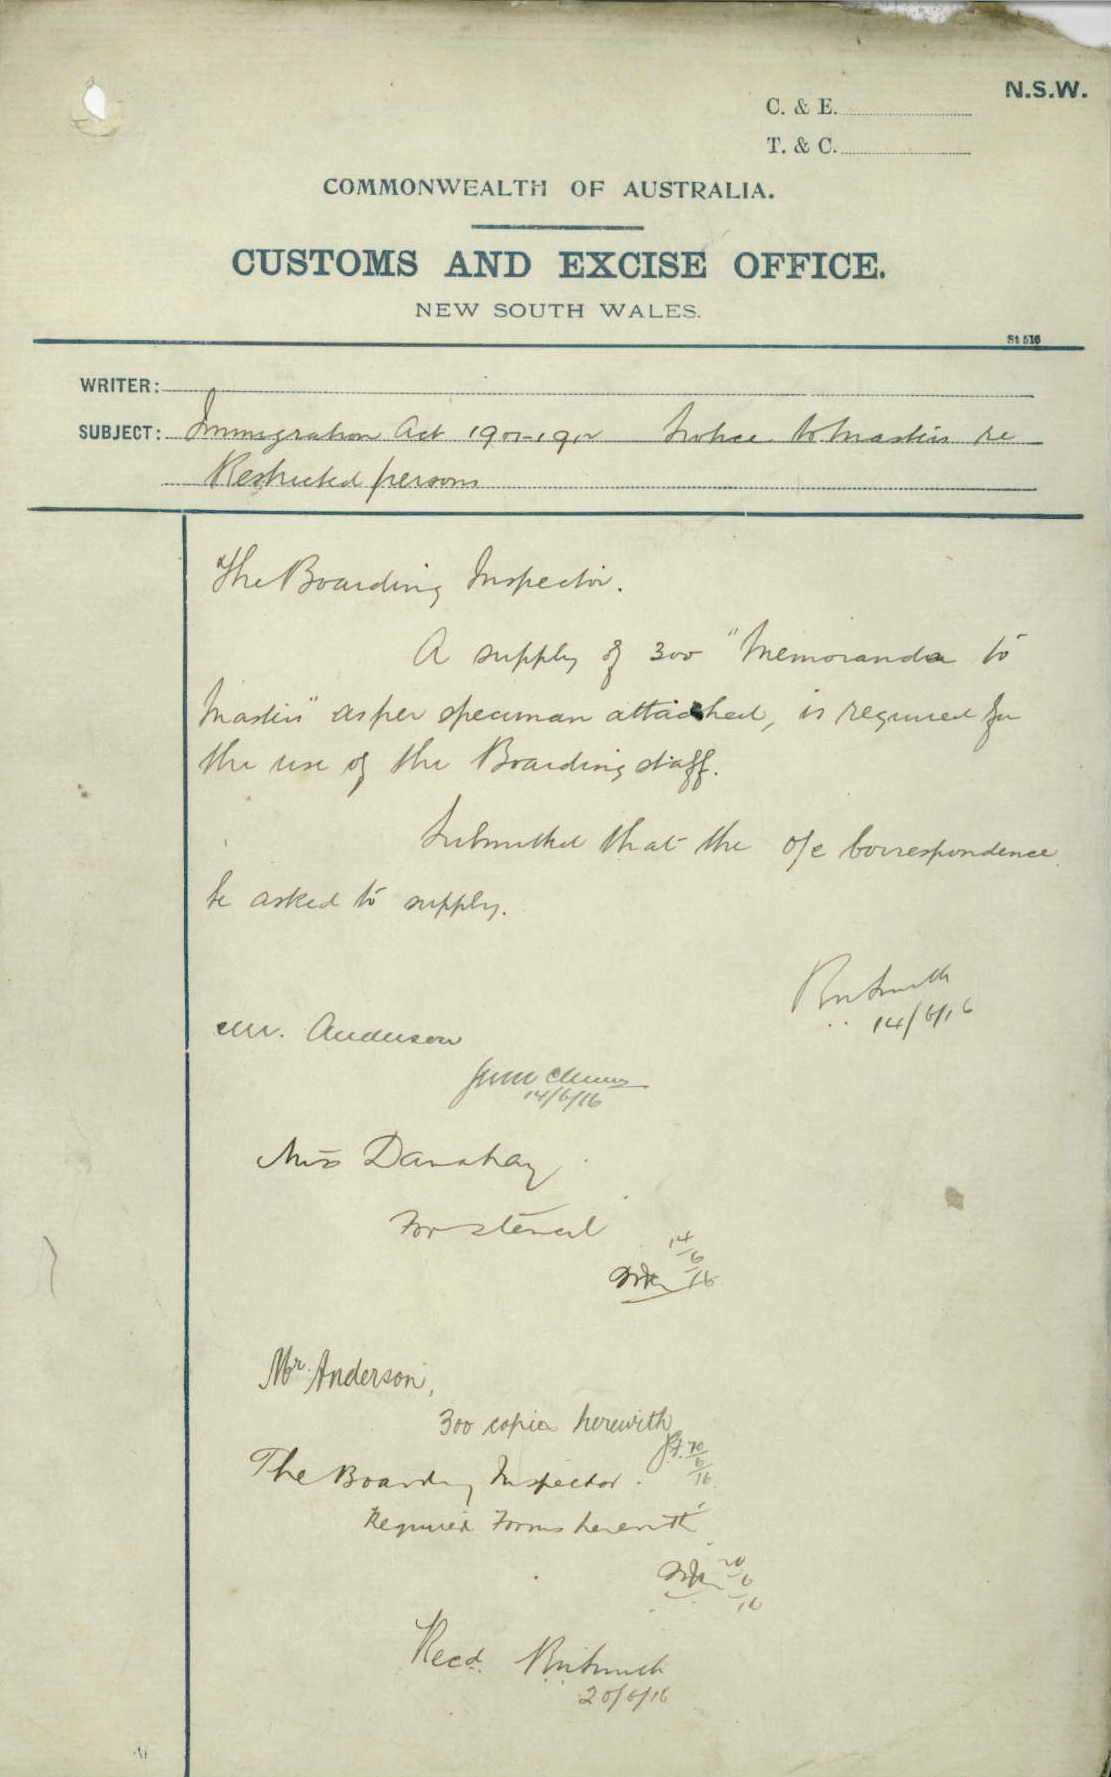 N.S.W.
C. & E.
T. & C.
COMMONWEALTH OF AUSTRALIA.
CUSTOMS AND EXCISE OFFICE.
NEW SOUTH WALES.
St 516
WRITER:
SUBJECT: Immigration Act 1901-1912 Notice to Masters re
Restricted persons
The Boarding Inspector.
A supply of 300 "Memoranda to
Masters" as per specimen attached, is required for
the use of the Boarding staff.
Submitted that the o/c Correspondence
be asked to supply.
Smith
14/6/16
Mr. Anderson
14/6/16
Miss Danahay
For stencil
14/6/16
Mr. Anderson,
300 copies herewith
20/6/16
The Boarding Inspector.
Required Forms herewith
20/6/16
Recd. Smith
20/6/16